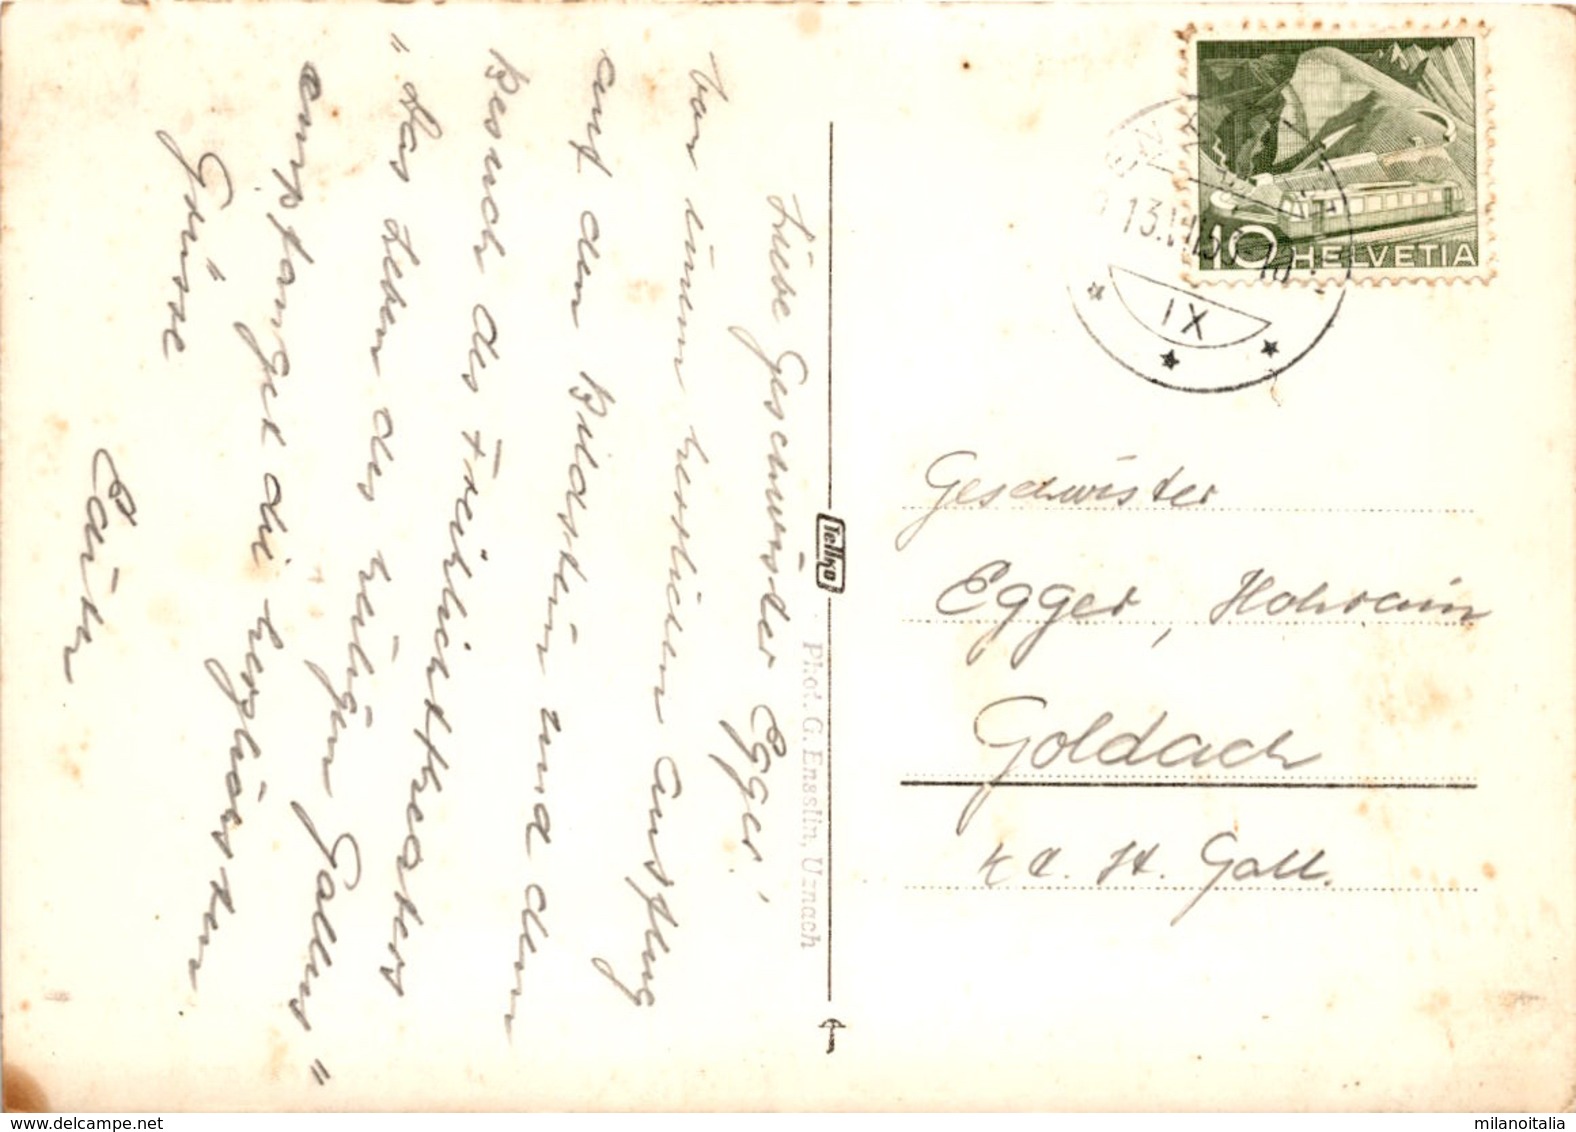 Liebe Geschwister Egger!
Von einem herrlichen Ausflug
auf den Bildstein und dem
Besuch des Freihlichttheaters
"Das Leben des heiligen Gallus"
empfanget die herzliichsten
Grüsse
Edith
Tellko
Phot. G. Ensslin, Uznach
10
HELVETIA
IX
Geschwister
Egger, Hohrain
Goldach
kt. St. Gall.
milanoitalia